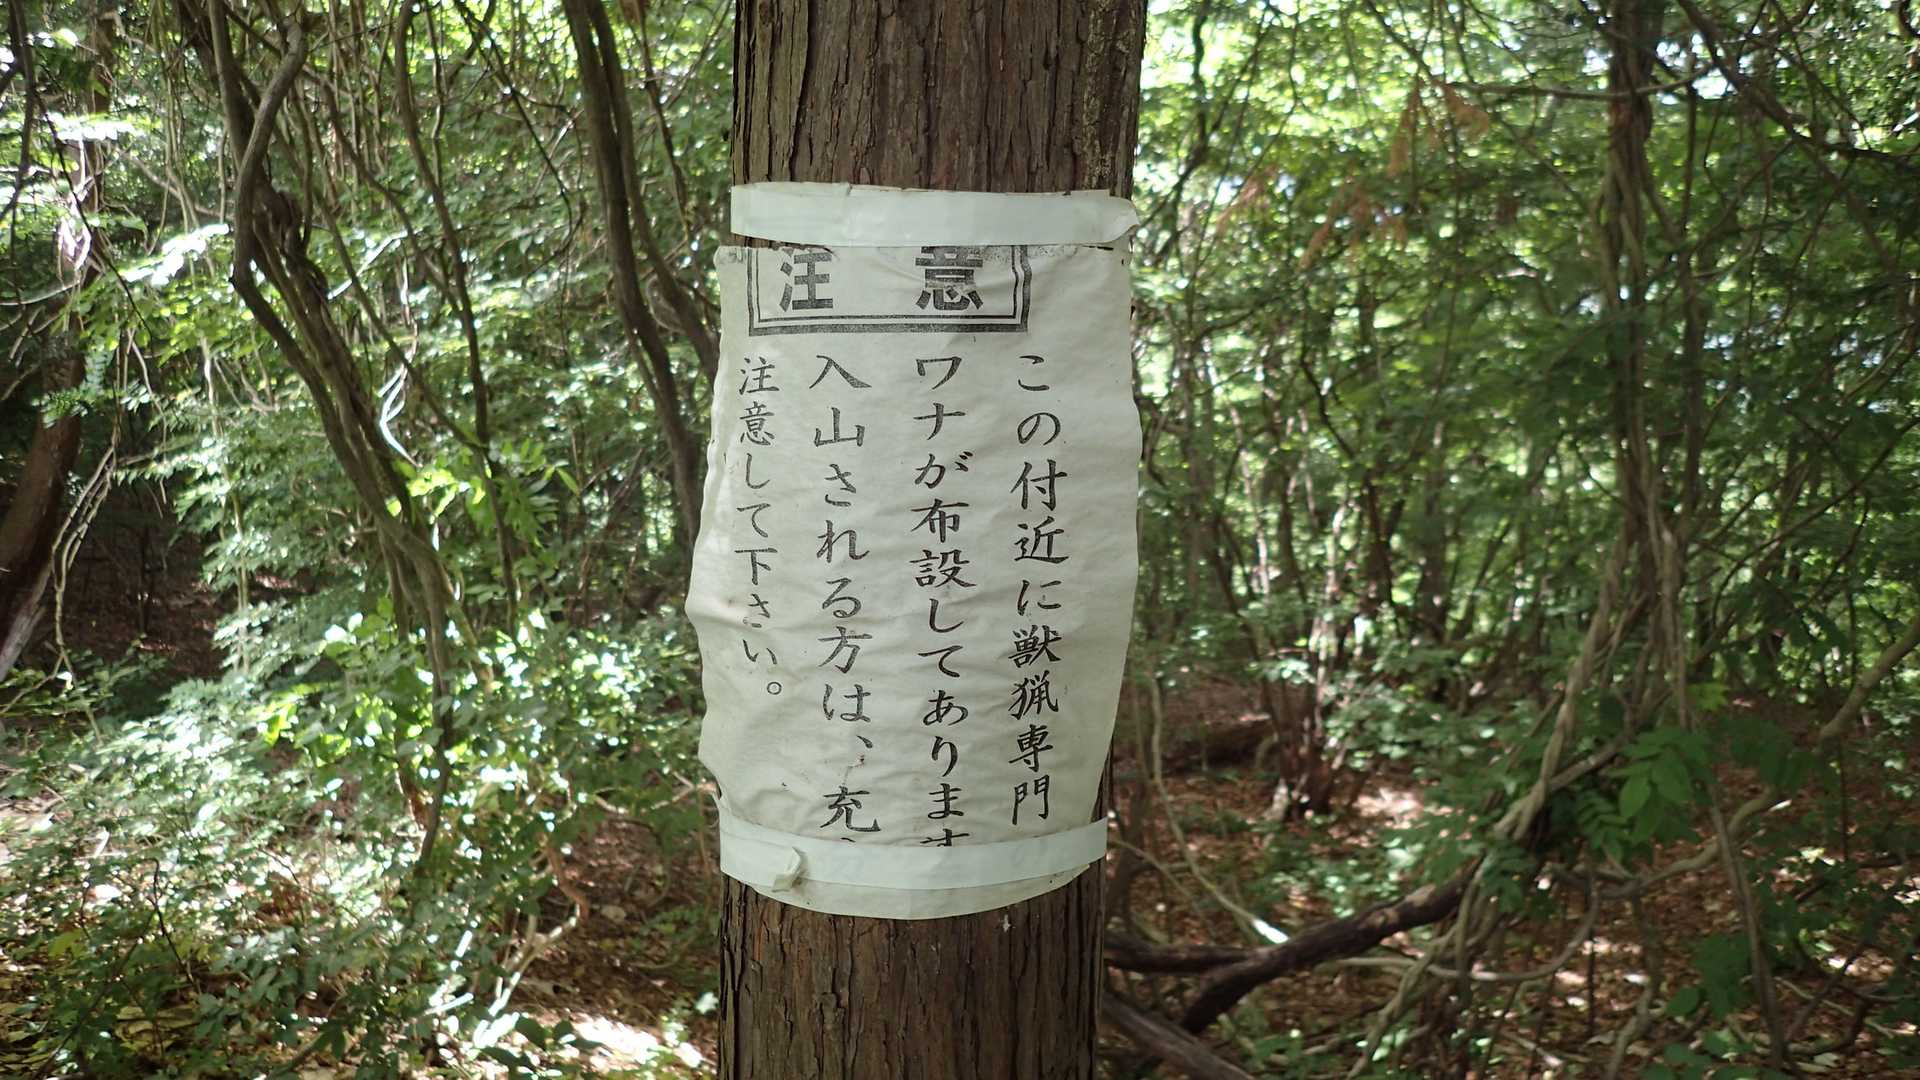 注 意
この付近に獣猟専門
ワナが布設してあります
入山される方は、充
注意して下さい。